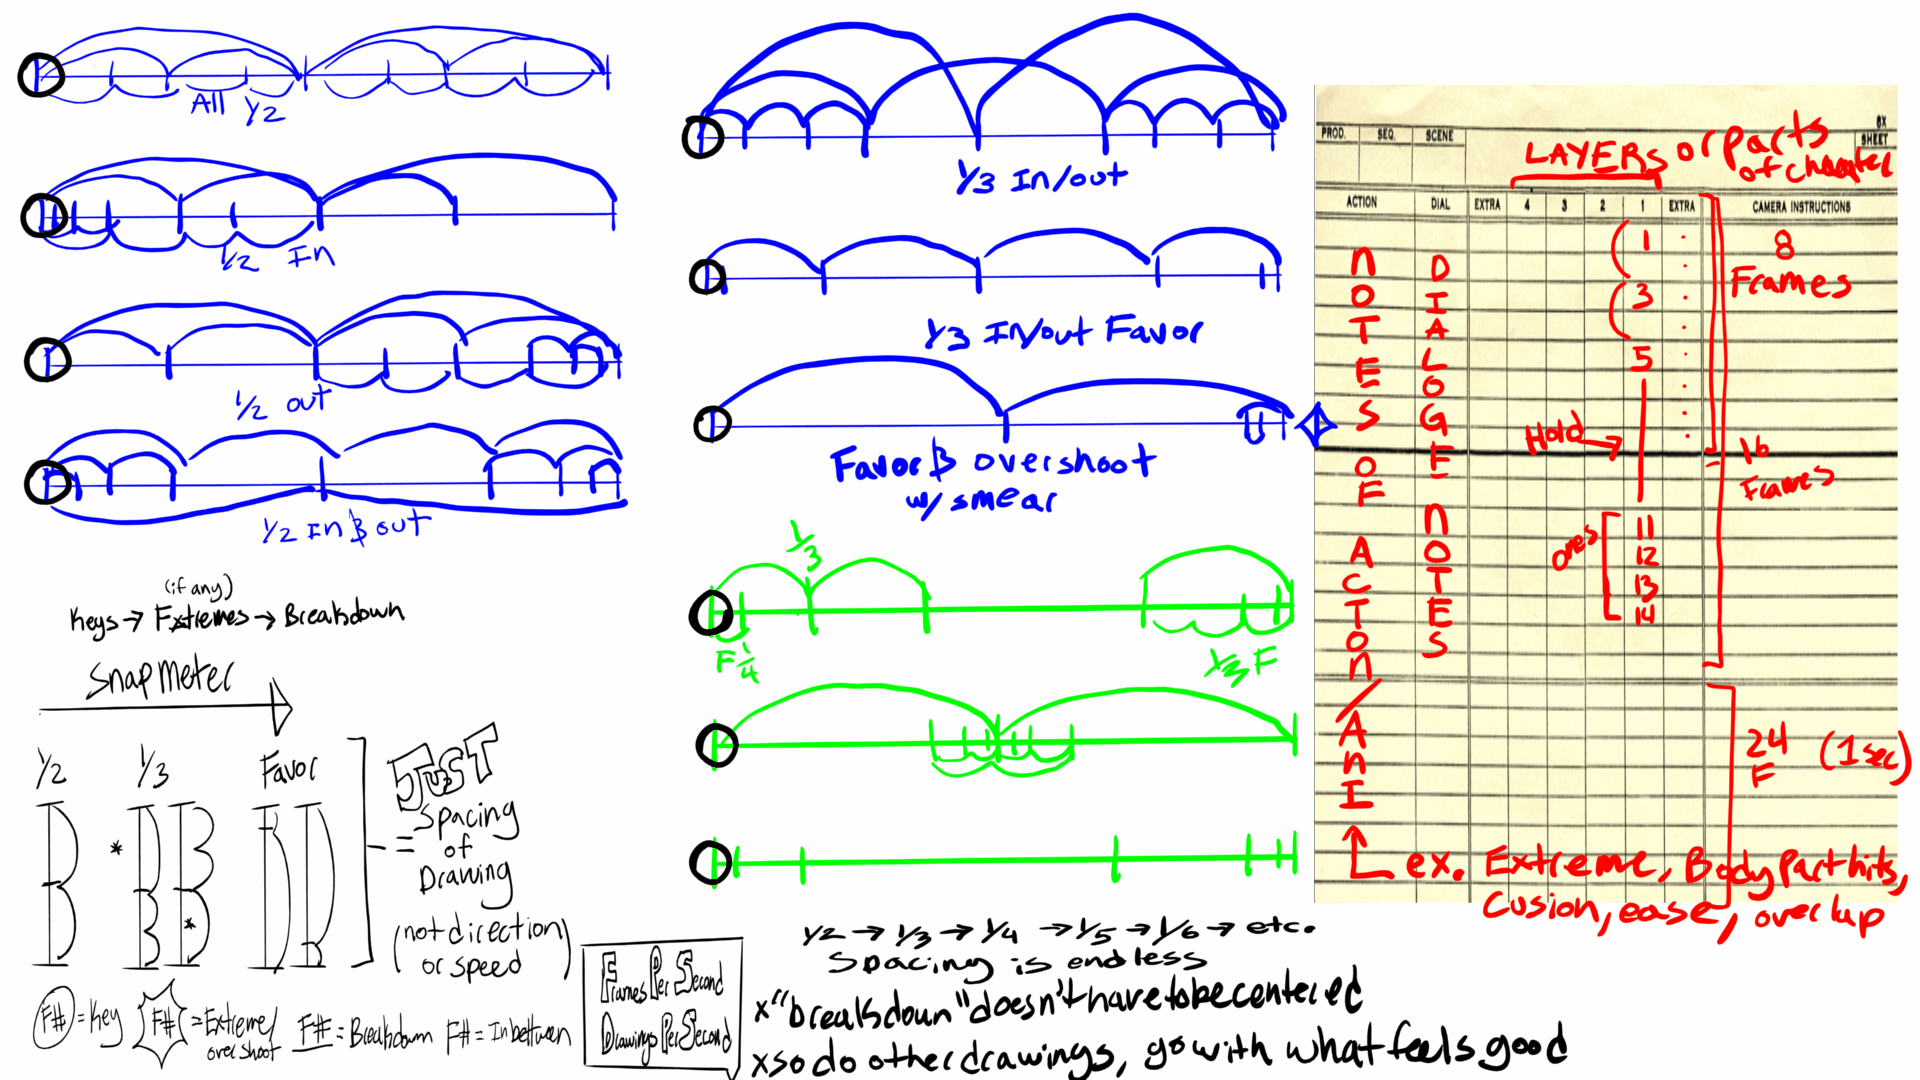 All 1/2
1/2 In
1/2 out
1/2 In & out
(if any)
Keys → Extremes → Breakdown
Snap Meter
1/2 1/3 Favor
*
*
JUST
= Spacing
of
Drawing
(not direction)
or speed
F# = Key
F# = Extreme/
overshoot
F# = Breakdown
F# = Inbetween
Frames Per Second
Drawings Per Second
1/3 In/out
1/3 In/out Favor
Favor & overshoot
w/ smear
1/3
F 1/4
F
1/2 → 1/3 → 1/4 → 1/5 → 1/6 → etc.
Spacing is endless
x "breakdown" doesn't have to be centered
x so do other drawings, go with what feels good
8X
PROD. SEQ. SCENE SHEET
LAYERS or Parts
of character
ACTION DIAL EXTRA 4 3 2 1 EXTRA CAMERA INSTRUCTIONS
NOTES OF ACTON/ANI
DIALOGE NOTES
1
3
5
Hold →
ones
11
12
13
14
8
Frames
16
Frames
24
F
(1 sec)
ex. Extreme, Body Part hits,
Cusion, ease, overlap